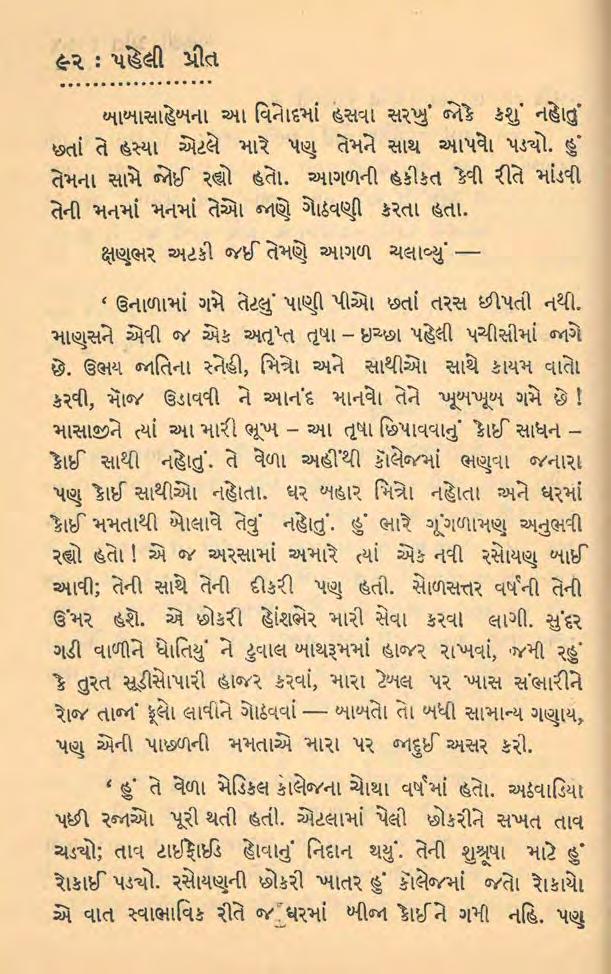 ૯૨ : પહેલી પ્રીત
બાબાસાહેબના આ વિનોદમાં હસવા સરખું જોકે કશું નહોતું
છતાં તે હસ્યા એટલે મારે પણ તેમને સાથ આપવો પડ્યો. હું
તેમના સામે જોઈ રહ્યો હતો. આગળની હકીકત કેવી રીતે માંડવી
તેની મનમાં મનમાં તેઓ જાણે ગોઠવણી કરતા હતા.
ક્ષણભર અટકી જઈ તેમણે આગળ ચલાવ્યું —
‘ ઉનાળામાં ગમે તેટલું પાણી પીઓ છતાં તરસ છીપતી નથી.
માણસને એવી જ એક અતૃપ્ત તૃષા – ઇચ્છા પહેલી પચીસીમાં જાગે
છે. ઉભય જાતિના સ્નેહી, મિત્રો અને સાથીઓ સાથે કાયમ વાતો
કરવી, મૉજ ઉડાવવી ને આનંદ માનવો તેને ખૂબખૂબ ગમે છે !
માસાજીને ત્યાં આ મારી ભૂખ – આ તૃષા છિપાવવાનું કોઈ સાધન –
કોઈ સાથી નહોતું. તે વેળા અહીંથી કૉલેજમાં ભણવા જનારા
પણ કોઈ સાથીઓ નહોતા. ઘર બહાર મિત્રો નહોતા અને ઘરમાં
કોઈ મમતાથી બોલાવે તેવું નહોતું. હું ભારે ગૂંગળામણ અનુભવી
રહ્યો હતો ! એ જ અરસામાં અમારે ત્યાં એક નવી રસોયણ બાઈ
આવી; તેની સાથે તેની દીકરી પણ હતી. સોળસત્તર વર્ષની તેની
ઉંમર હશે. એ છોકરી હોંશભેર મારી સેવા કરવા લાગી. સુંદર
ગડી વાળીને ધોતિયું ને ટુવાલ બાથરૂમમાં હાજર રાખવાં, જમી રહું
કે તુરત સૂડીસોપારી હાજર કરવાં, મારા ટેબલ પર ખાસ સંભારીને
રોજ તાજાં ફૂલો લાવીને ગોઠવવાં — બાબતો તો બધી સામાન્ય ગણાય,
પણ એની પાછળની મમતાએ મારા પર જાદુઈ અસર કરી.
‘ હું તે વેળા મેડિકલ કૉલેજના ચોથા વર્ષમાં હતો. અઠવાડિયા
પછી રજાઓ પૂરી થતી હતી. એટલામાં પેલી છોકરીને સખત તાવ
ચડ્યો; તાવ ટાઈફૉઈડ હોવાનું નિદાન થયું. તેની શુશ્રૂષા માટે હું
રોકાઈ પડ્યો. રસોયણની છોકરી ખાતર હું કૉલેજમાં જતો રોકાયો
એ વાત સ્વાભાવિક રીતે જ ઘરમાં બીજા કોઈને ગમી નહિ. પણ